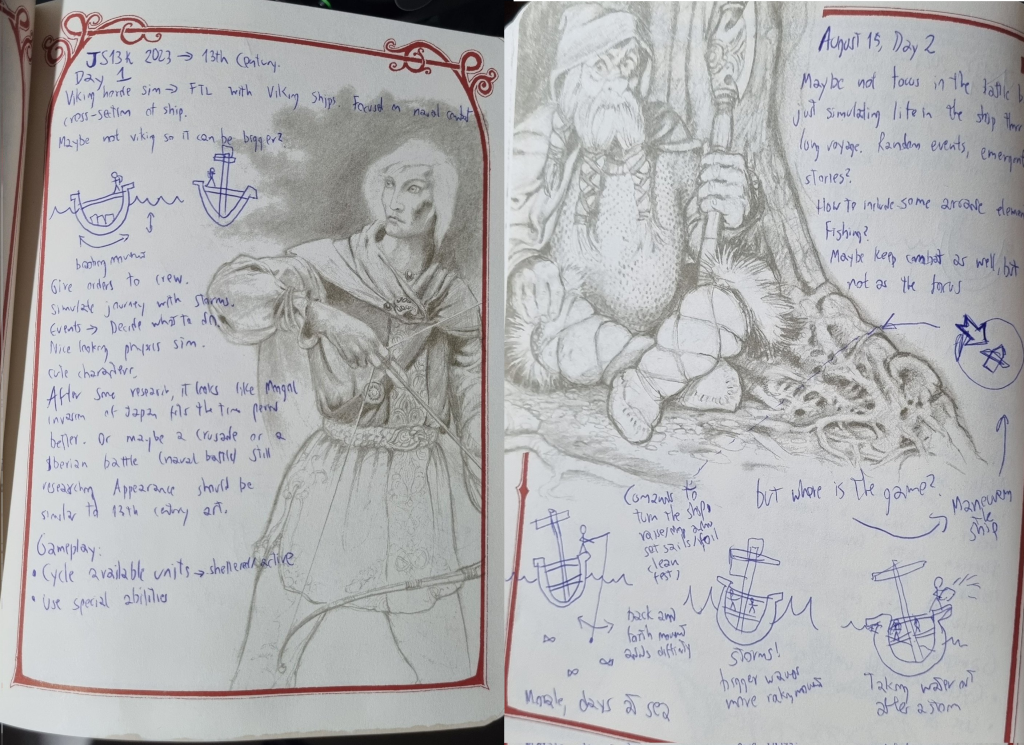 JS13k 2023 → 13th Century.
Day 1
Viking horde sim → FTL with Viking ships. Focused on naval combat
cross-section of ship.
Maybe not viking so it can be bigger?
Give orders to crew.
simulate journey with storms.
Events → Decide what to do.
Nice looking physics sim.
cute characters.
After some research, it looks like Mongol
invasion of Japan fits the time period
better. Or maybe a crusade or a
Iberian battle (naval battle) still
researching Appearance should be
similar to 13th century art.
Gameplay:
• Cycle available units → sheltered/active
• Use special abilities
August 15, Day 2
Maybe not focus in the battle b
just simulating life in the ship thro
long voyage. Random events, emergent
stories?
How to include some arcade elemen
Fishing?
Maybe keep combat as well, but
not as the focus
but where is the game?
Maneuver
ship
Commands to
turn the ship,
raise/drop
set sails/
clean
rest)
back and
forth
adds difficulty
Morale, days at sea
Storms!
bigger waves
more
Taking water out
after a storm